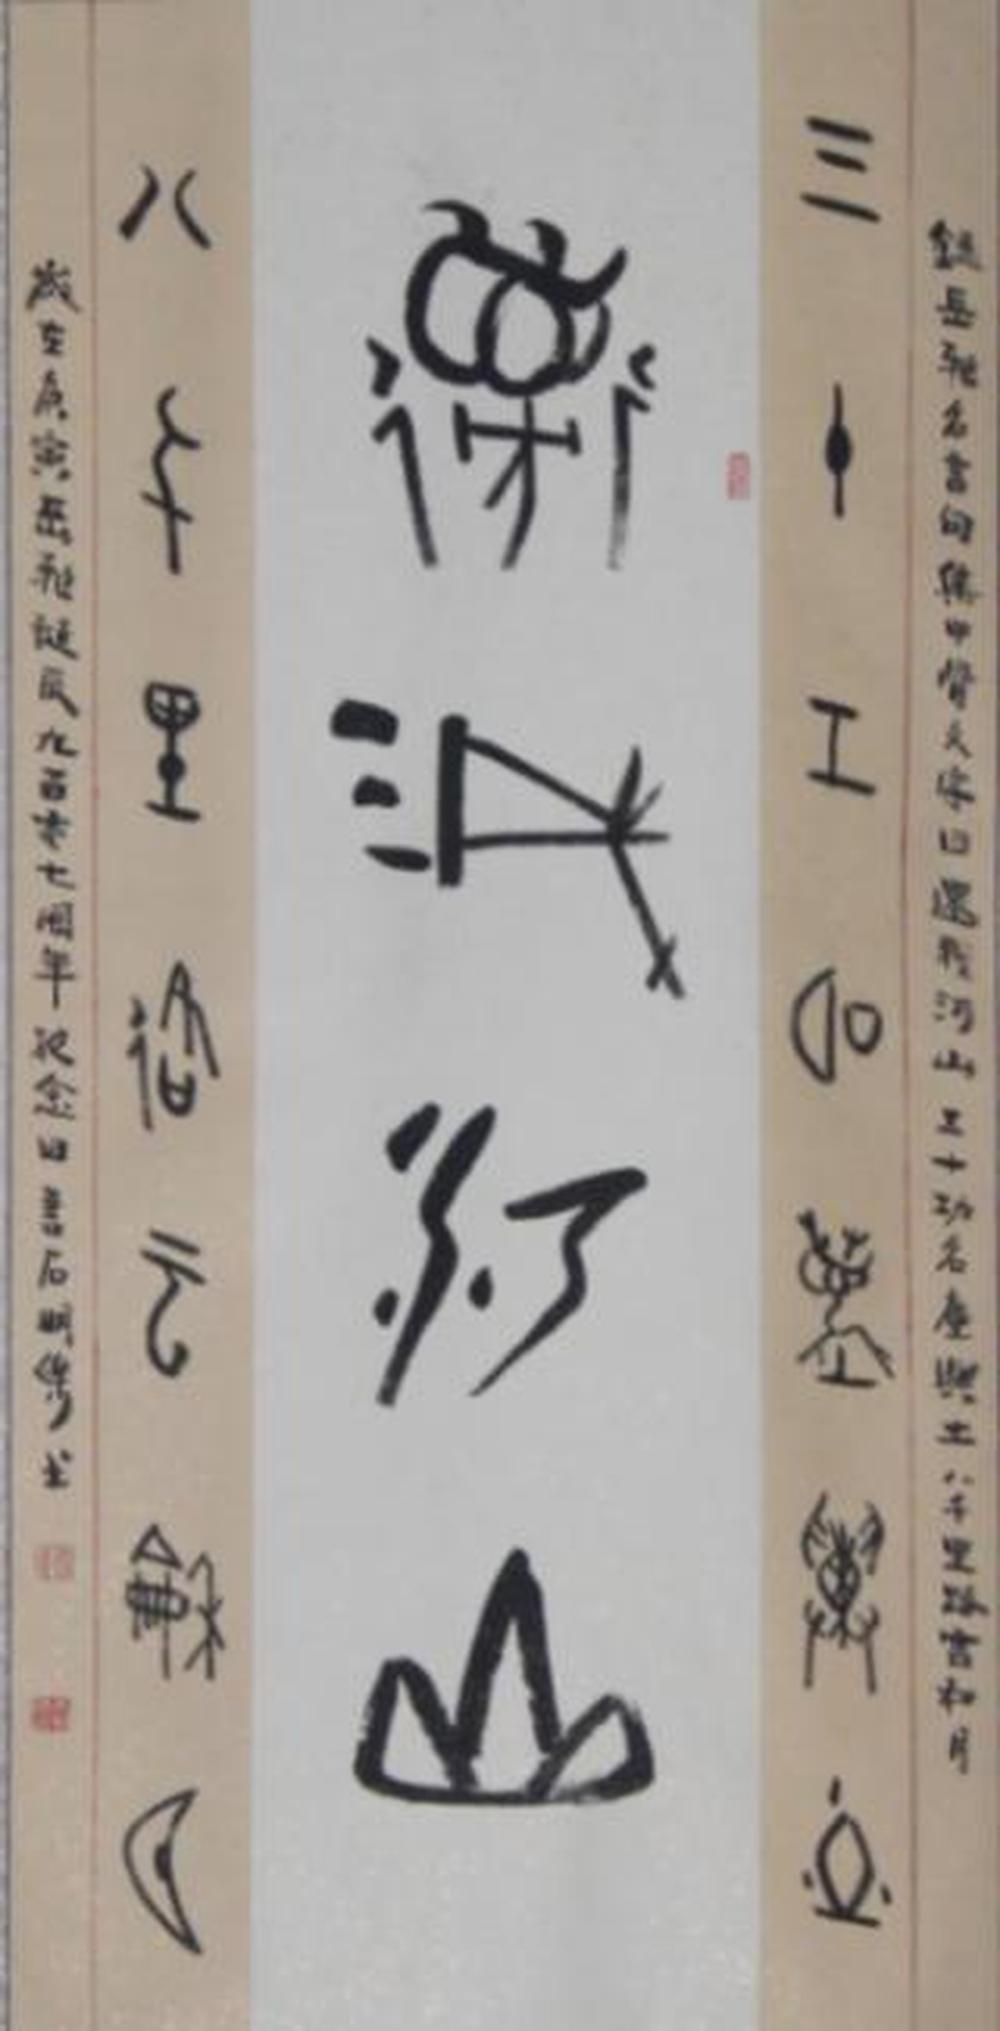 錄岳飛名言句集甲骨文字曰還我河山三十功名塵與土八千里路雲和月
三十工名塵與土
還我河山
八千里路云和月
歲在庚寅岳飛誕辰九百零七周年紀念日